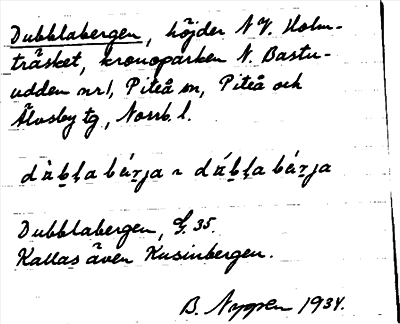 Dubblabergen, höjder N.V. Holm-
träsket, kronoparken N. Bastu-
udden nr 1, Piteå sn, Piteå och
Älvsby tg, Norrb. l.
Dubblabergen, G. 35.
Kallas även Kusinbergen.
B. Nyppen 1934.